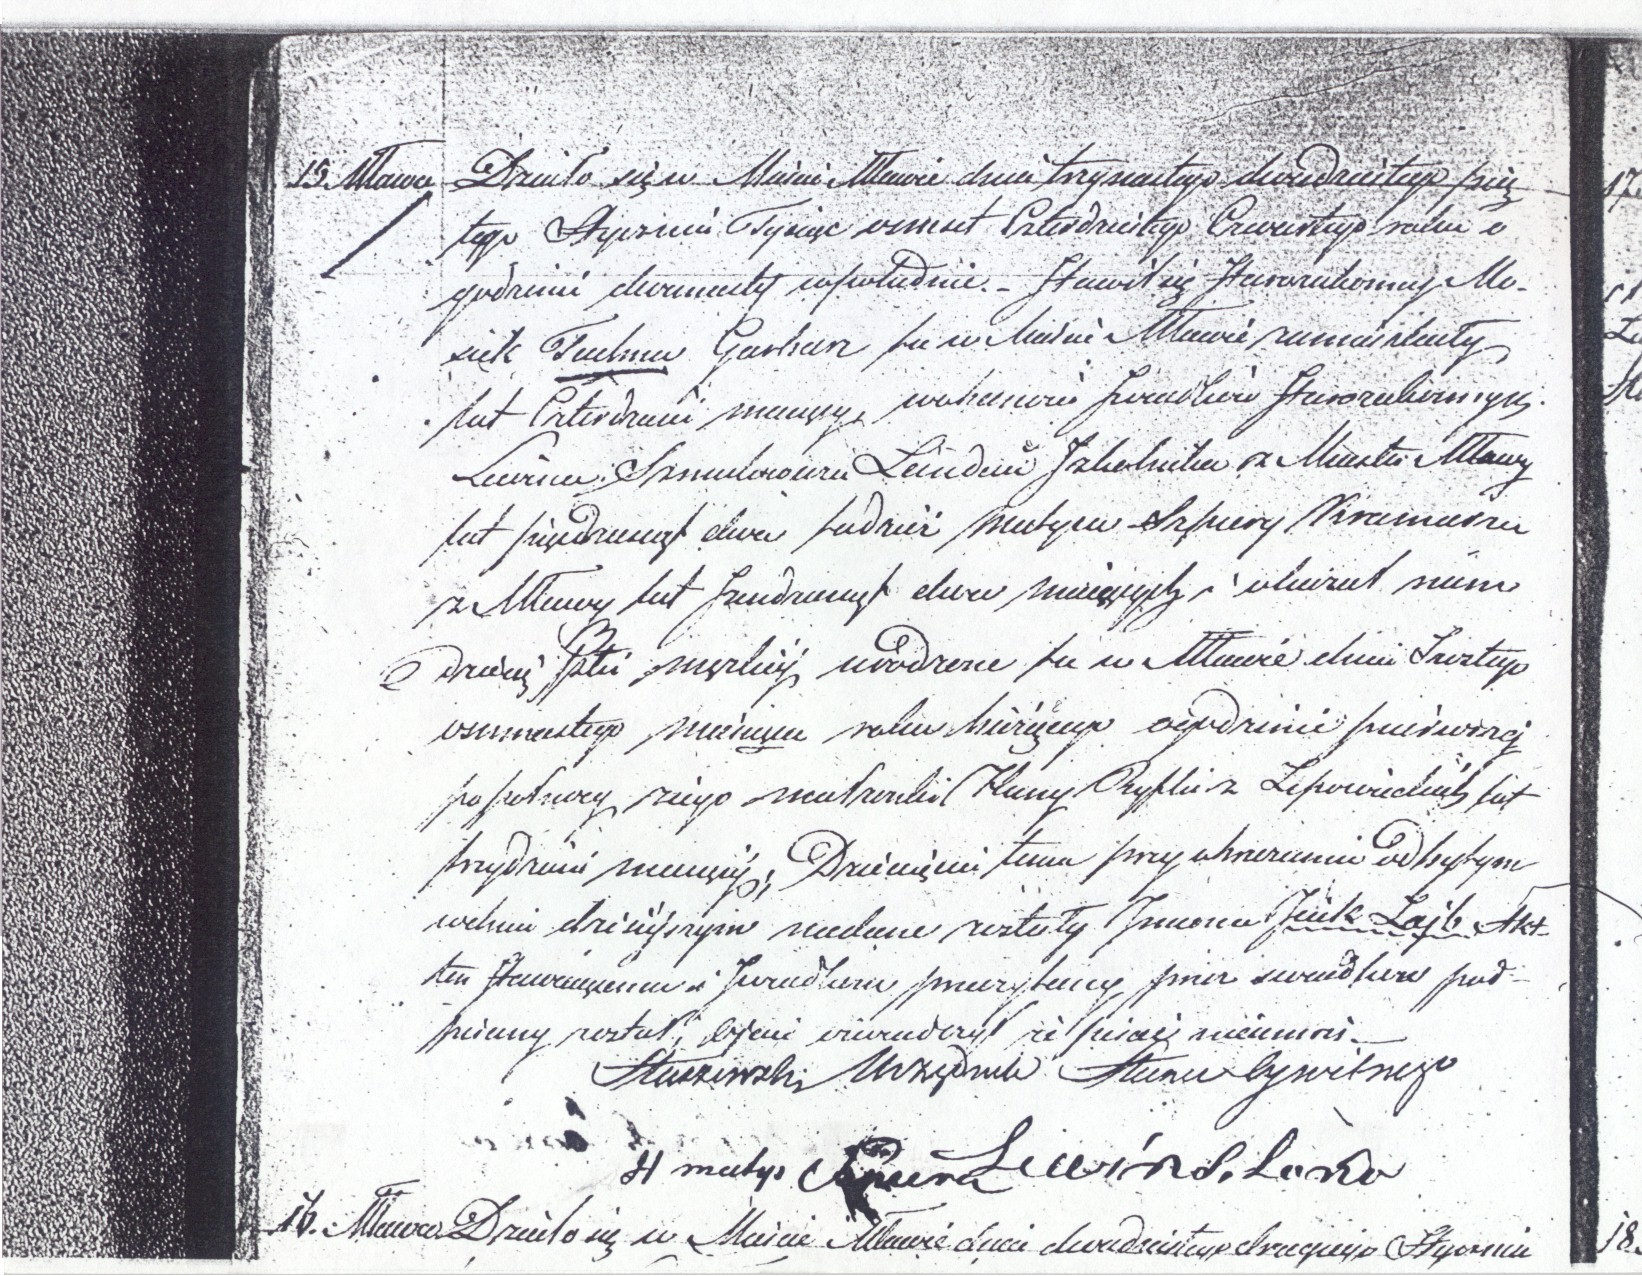 15. Mława Działo się w Mieście Mławie dnia trzynastego dwudziestego pią
tego Stycznia Tysiąc osmset Czterdziestego Czwartego roku o
godzinie dwunasty wpołudnie. – Stawił się Starozakonny Mo-
siek Garbarz tu w Mieście Mławie zamieszkały
lat Czterdzieści maiący, wobecności Świadków Starozakonnych
Lewina Szmulowicza Lendau Szkolnika z Miasta Mławy
lat pięćdziesiąt dwa tudzież Matysa Szpiery Kramarza
z Mławy lat sześćdziesiąt dwa maiących i okazał nam
dziecię płci męzkiéj urodzone tu w Mławie dnia Szóstego
osmnastego miesiąca roku bieżącego ogodzinie pierwszej
popołnocy, zjego małżonki Hany Ryfki z Lipowieckich lat
trzydzieści maiącéj, Dziecięciu temu przy obrzezaniu odbytym
wdniu dzisiéjszym nadane zostały Imiona Icek Lajb Akt
ten stawaiącemu i Świadkom przeczytany przez świadków pod-
pisany został, Ojciec oświadczył że pisać nieumie. –
Staszewski Urzędnik Stanu Cywilnego
H matys Szpiera Lewin S. Lando
16. Mława Działo się w Mieście Mławie dnia dwudziestego drugiego Stycznia
17.
18.